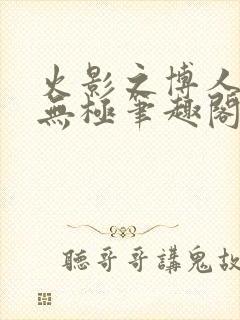 火影之博人
無極筆趣閣
聽哥哥講鬼故